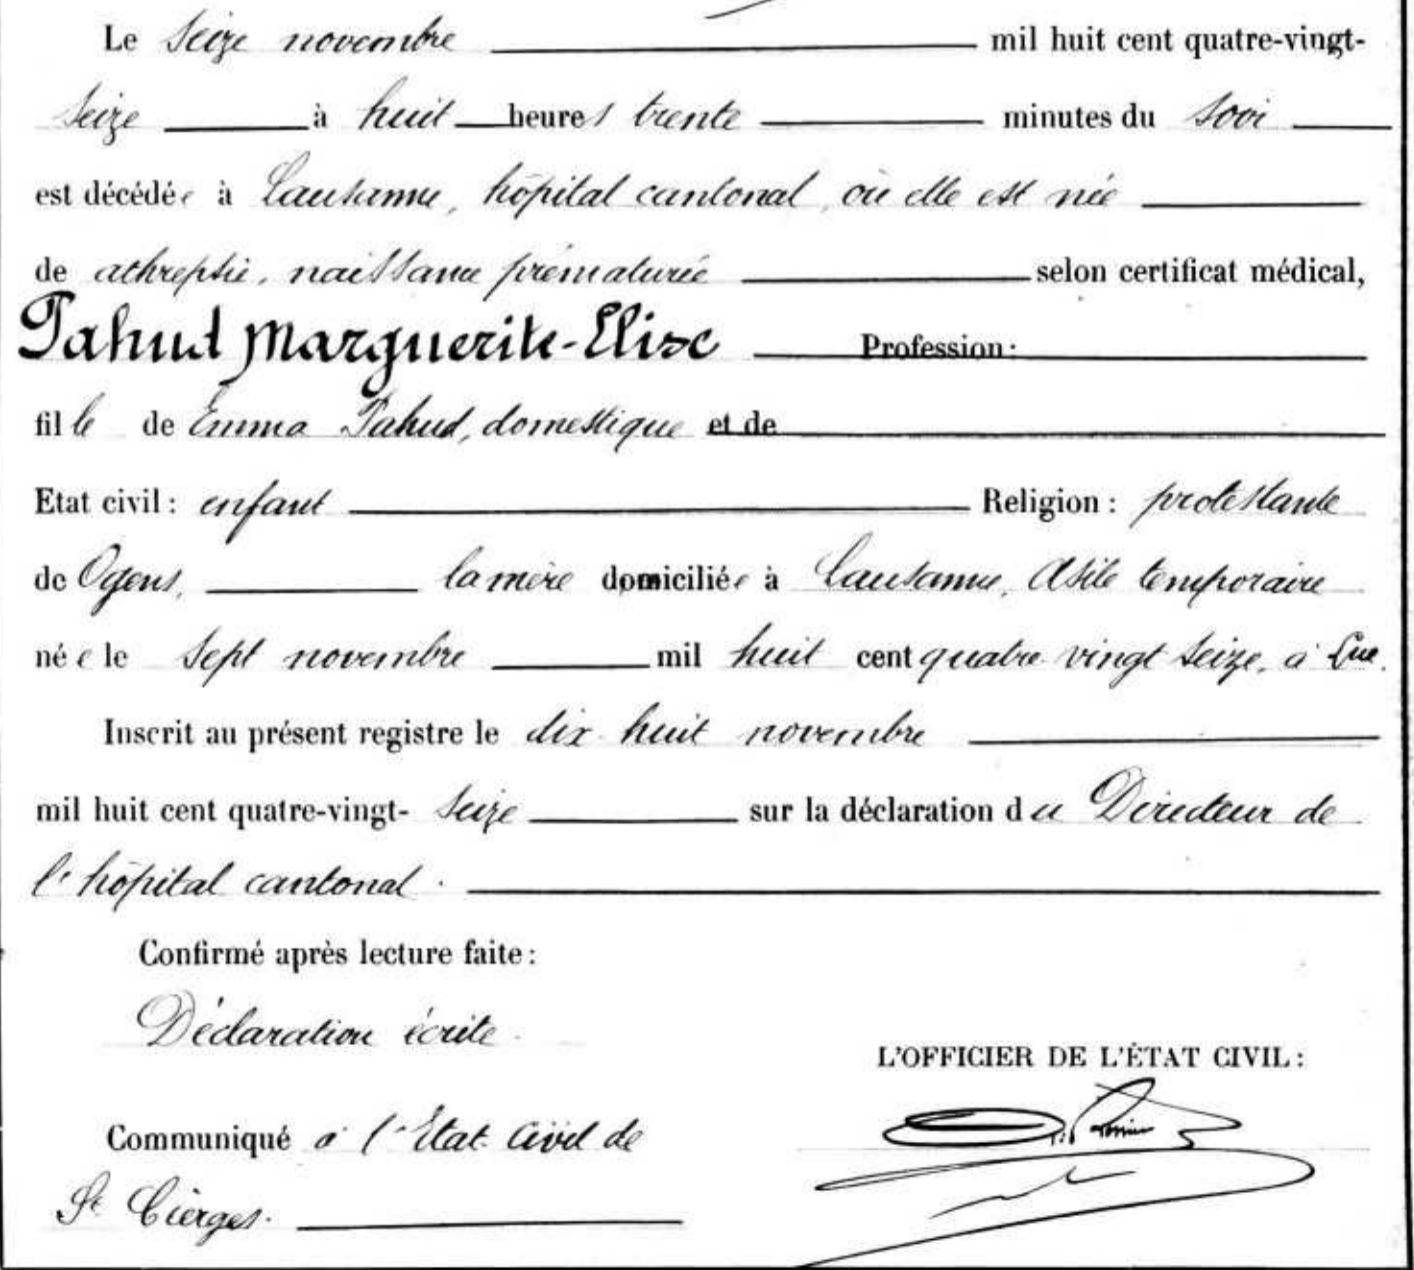 Le seize novembre mil huit cent quatre-vingt-
seize à huit heures trente minutes du soir
est décédée à Lausanne, hôpital cantonal, où elle est née
de athrepsie, naissance prématurée selon certificat médical,
Pahud Marguerite-Elise Profession:
fille de Emma Pahud, domestique et de
Etat civil: enfant Religion: protestante
de Ogens, la mère domiciliée à Lausanne, Asile temporaire
née le sept novembre mil huit cent quatre vingt seize, à Lne.
Inscrit au présent registre le dix huit novembre
mil huit cent quatre-vingt- seize sur la déclaration du Directeur de
l'hôpital cantonal.
Confirmé après lecture faite:
Déclaration écrite.
L'OFFICIER DE L'ÉTAT CIVIL:
Communiqué à l'Etat Civil de
St Cierges.